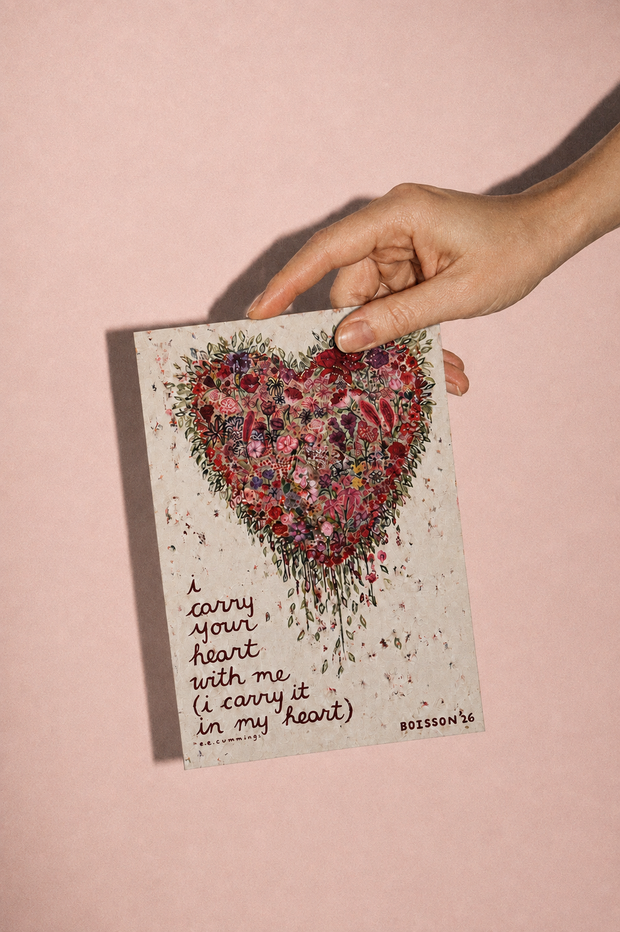 i
carry
your
heart
with me
(i carry it
in my heart)
- e.e.cummings
BOISSON '26